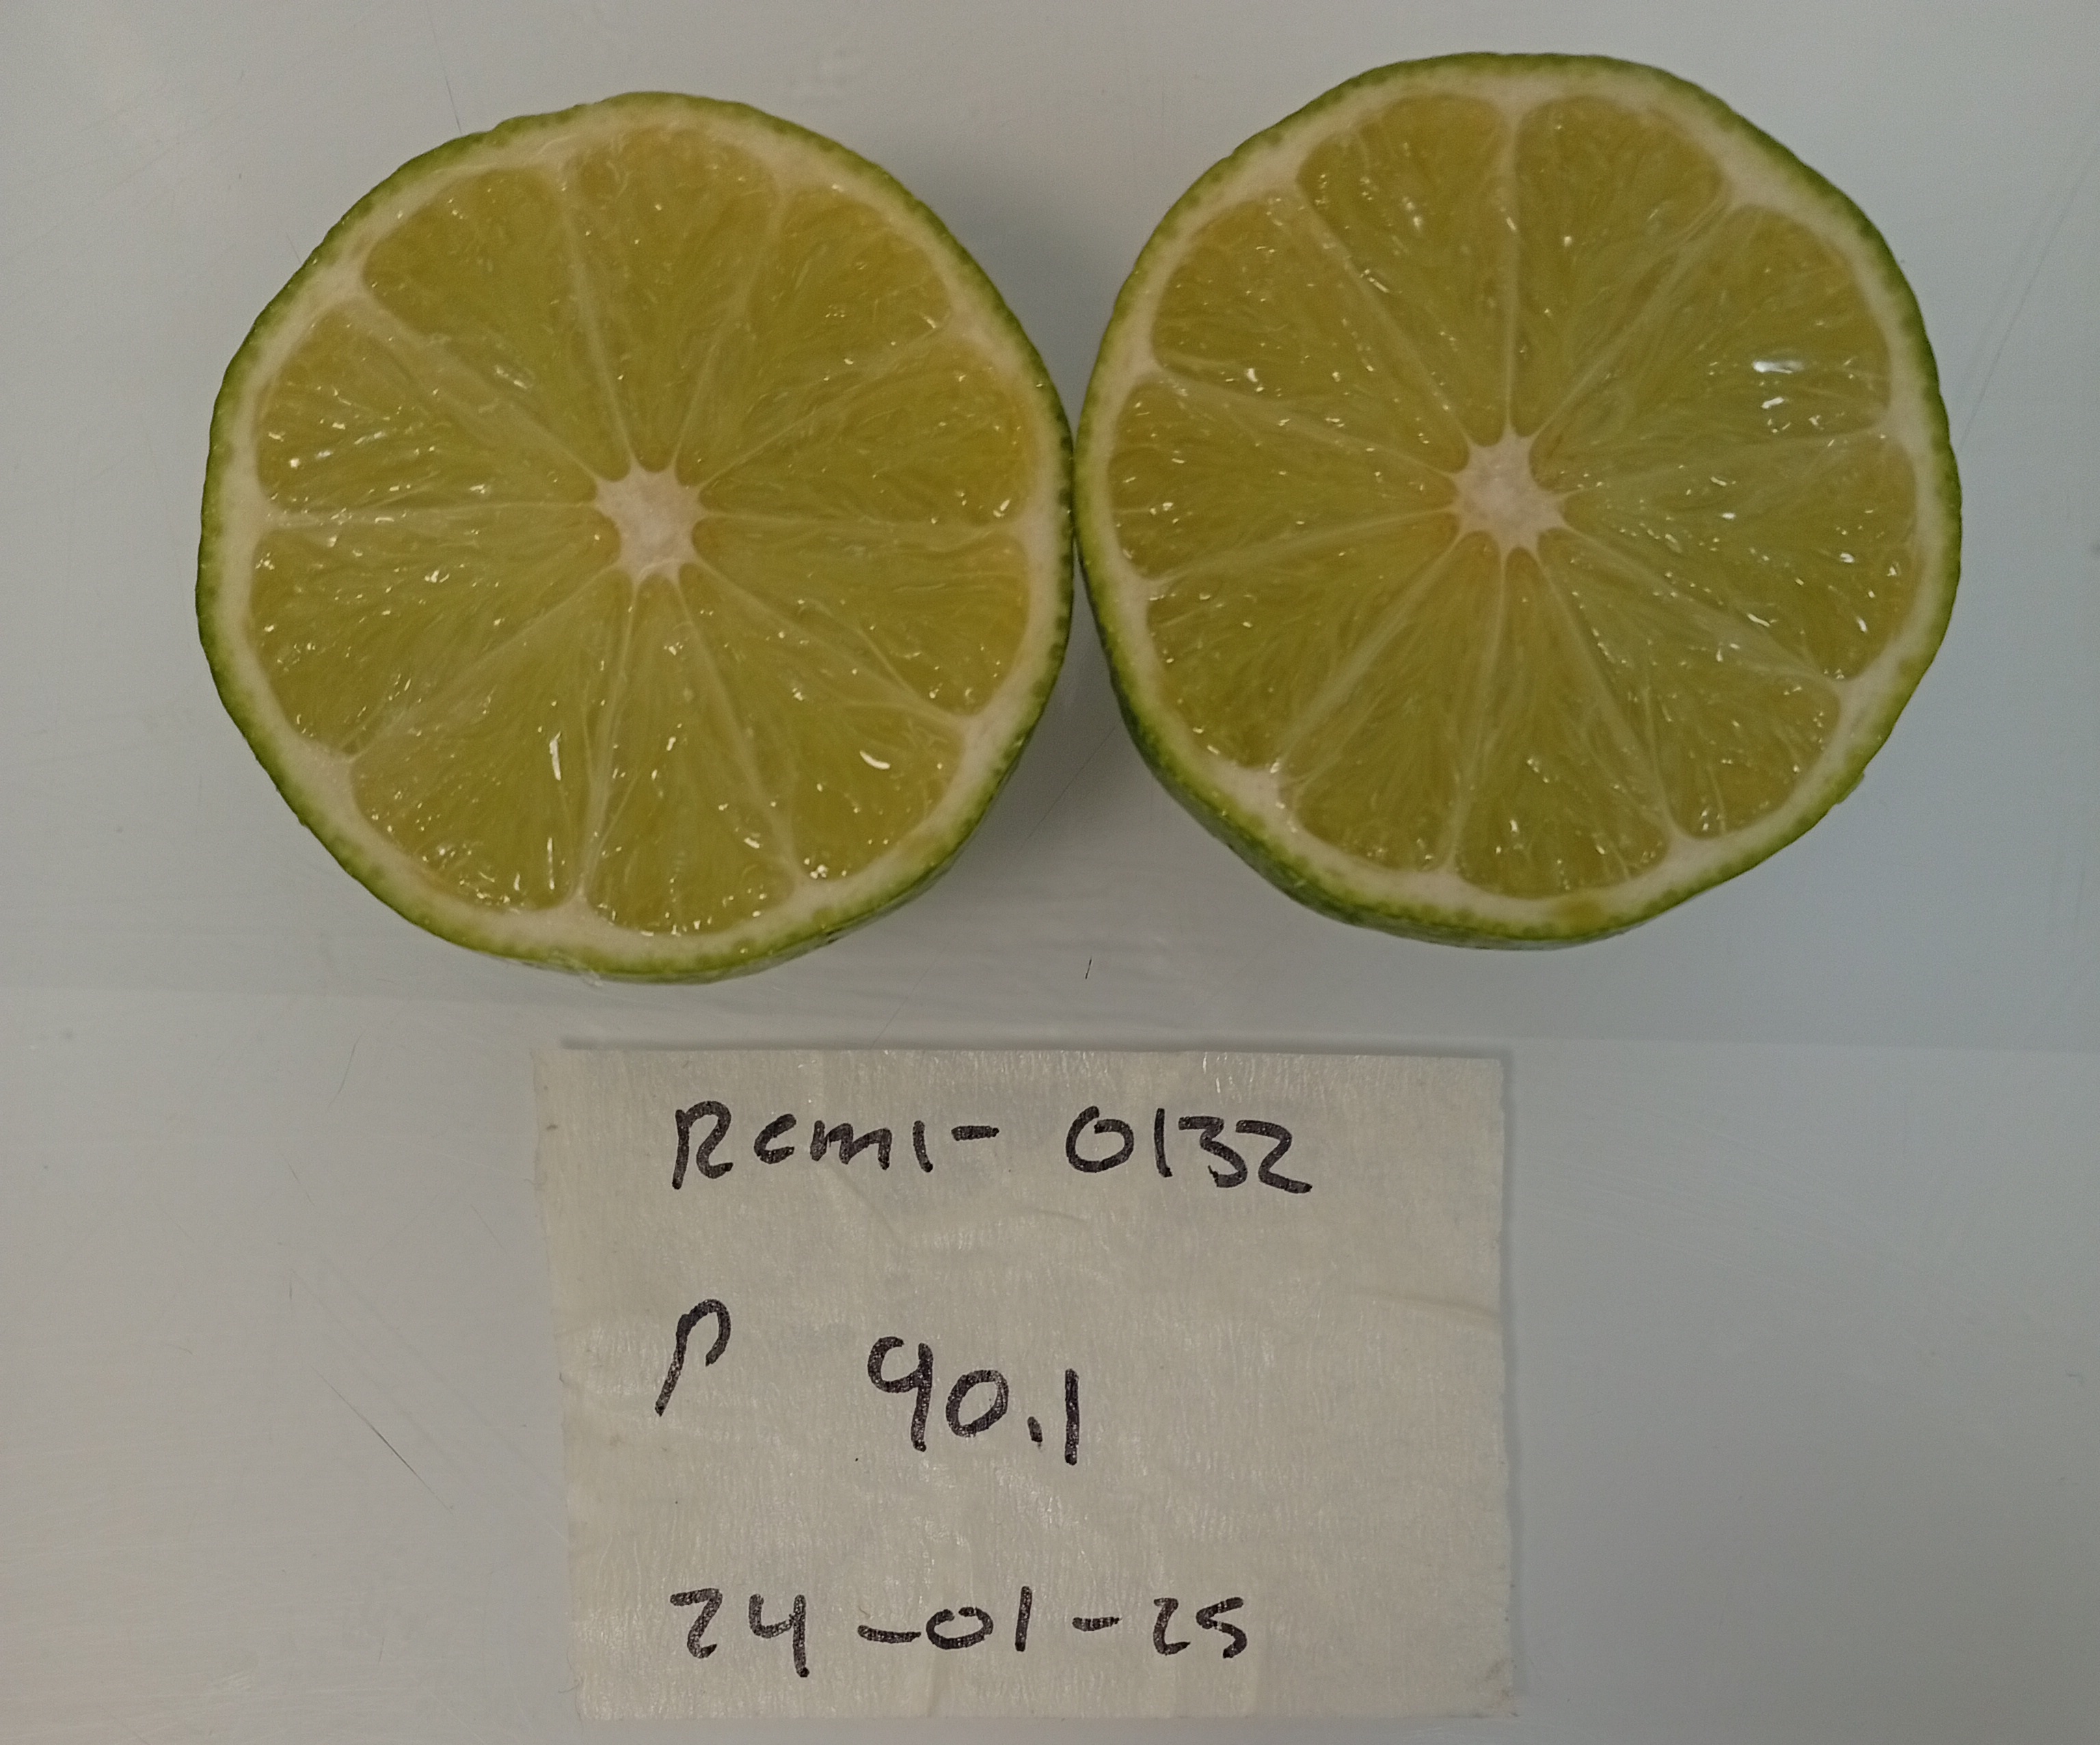 Rcm1- 0132
P 90.1
24-01-25